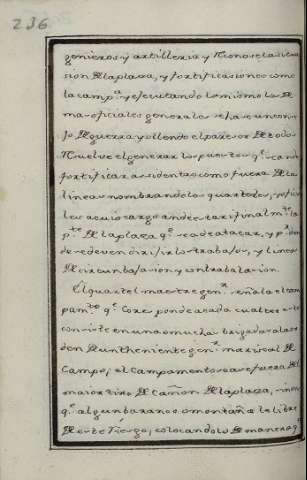 236
genieros y artilleria y reconose la situa
sion de la plaza, y fortificasiones como
la camp.ª y ejecutando lo mismo los de
mas oficiales generales se hase un con
de guerra y ollendo el pareser de todos
Ruelve el general los puestos q.e
fortificar asi dentro como fuera de la
linea nombrando los quarteles,
les a cuio cargo an de estar y final m.te la
p.te de la plaza q.e se a de atacar, y p.r
de se deven dirijir los trabajos, y linea
de sircunbalasion y contrabalasion.
El quartel maestre gen.l señala el cam
pam.to q.e Corresponde a cada cual
conviste en una o mucha brigada a la or
den de un theniente gen.l mariscal de
Campo, el Campamento sea afuera del
maior tiro de Cañon de la plaza,
q.e algun barranco o montaña le libre
de este riesgo, colocandolo de manera q.e